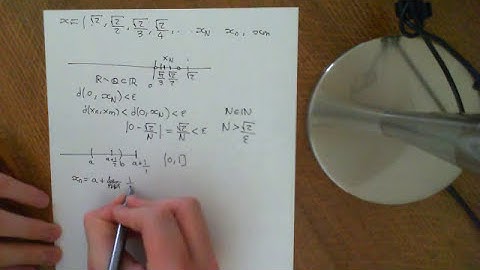 x = ( √2, √2/2, √2/3, √2/4, ... xN xn, xm
xN 1
0 √2/3 √2/2 √2
ℝ∖ℚ⊂ℝ
d(0, xN) < ε
d(xn, xm) < d(0, xN) < ε N∈ℕ
|0 - √2/N| = √2/N < ε N > √2/ε
a a+1/2 b a+1/1 (0,1]
xn = a + 1/